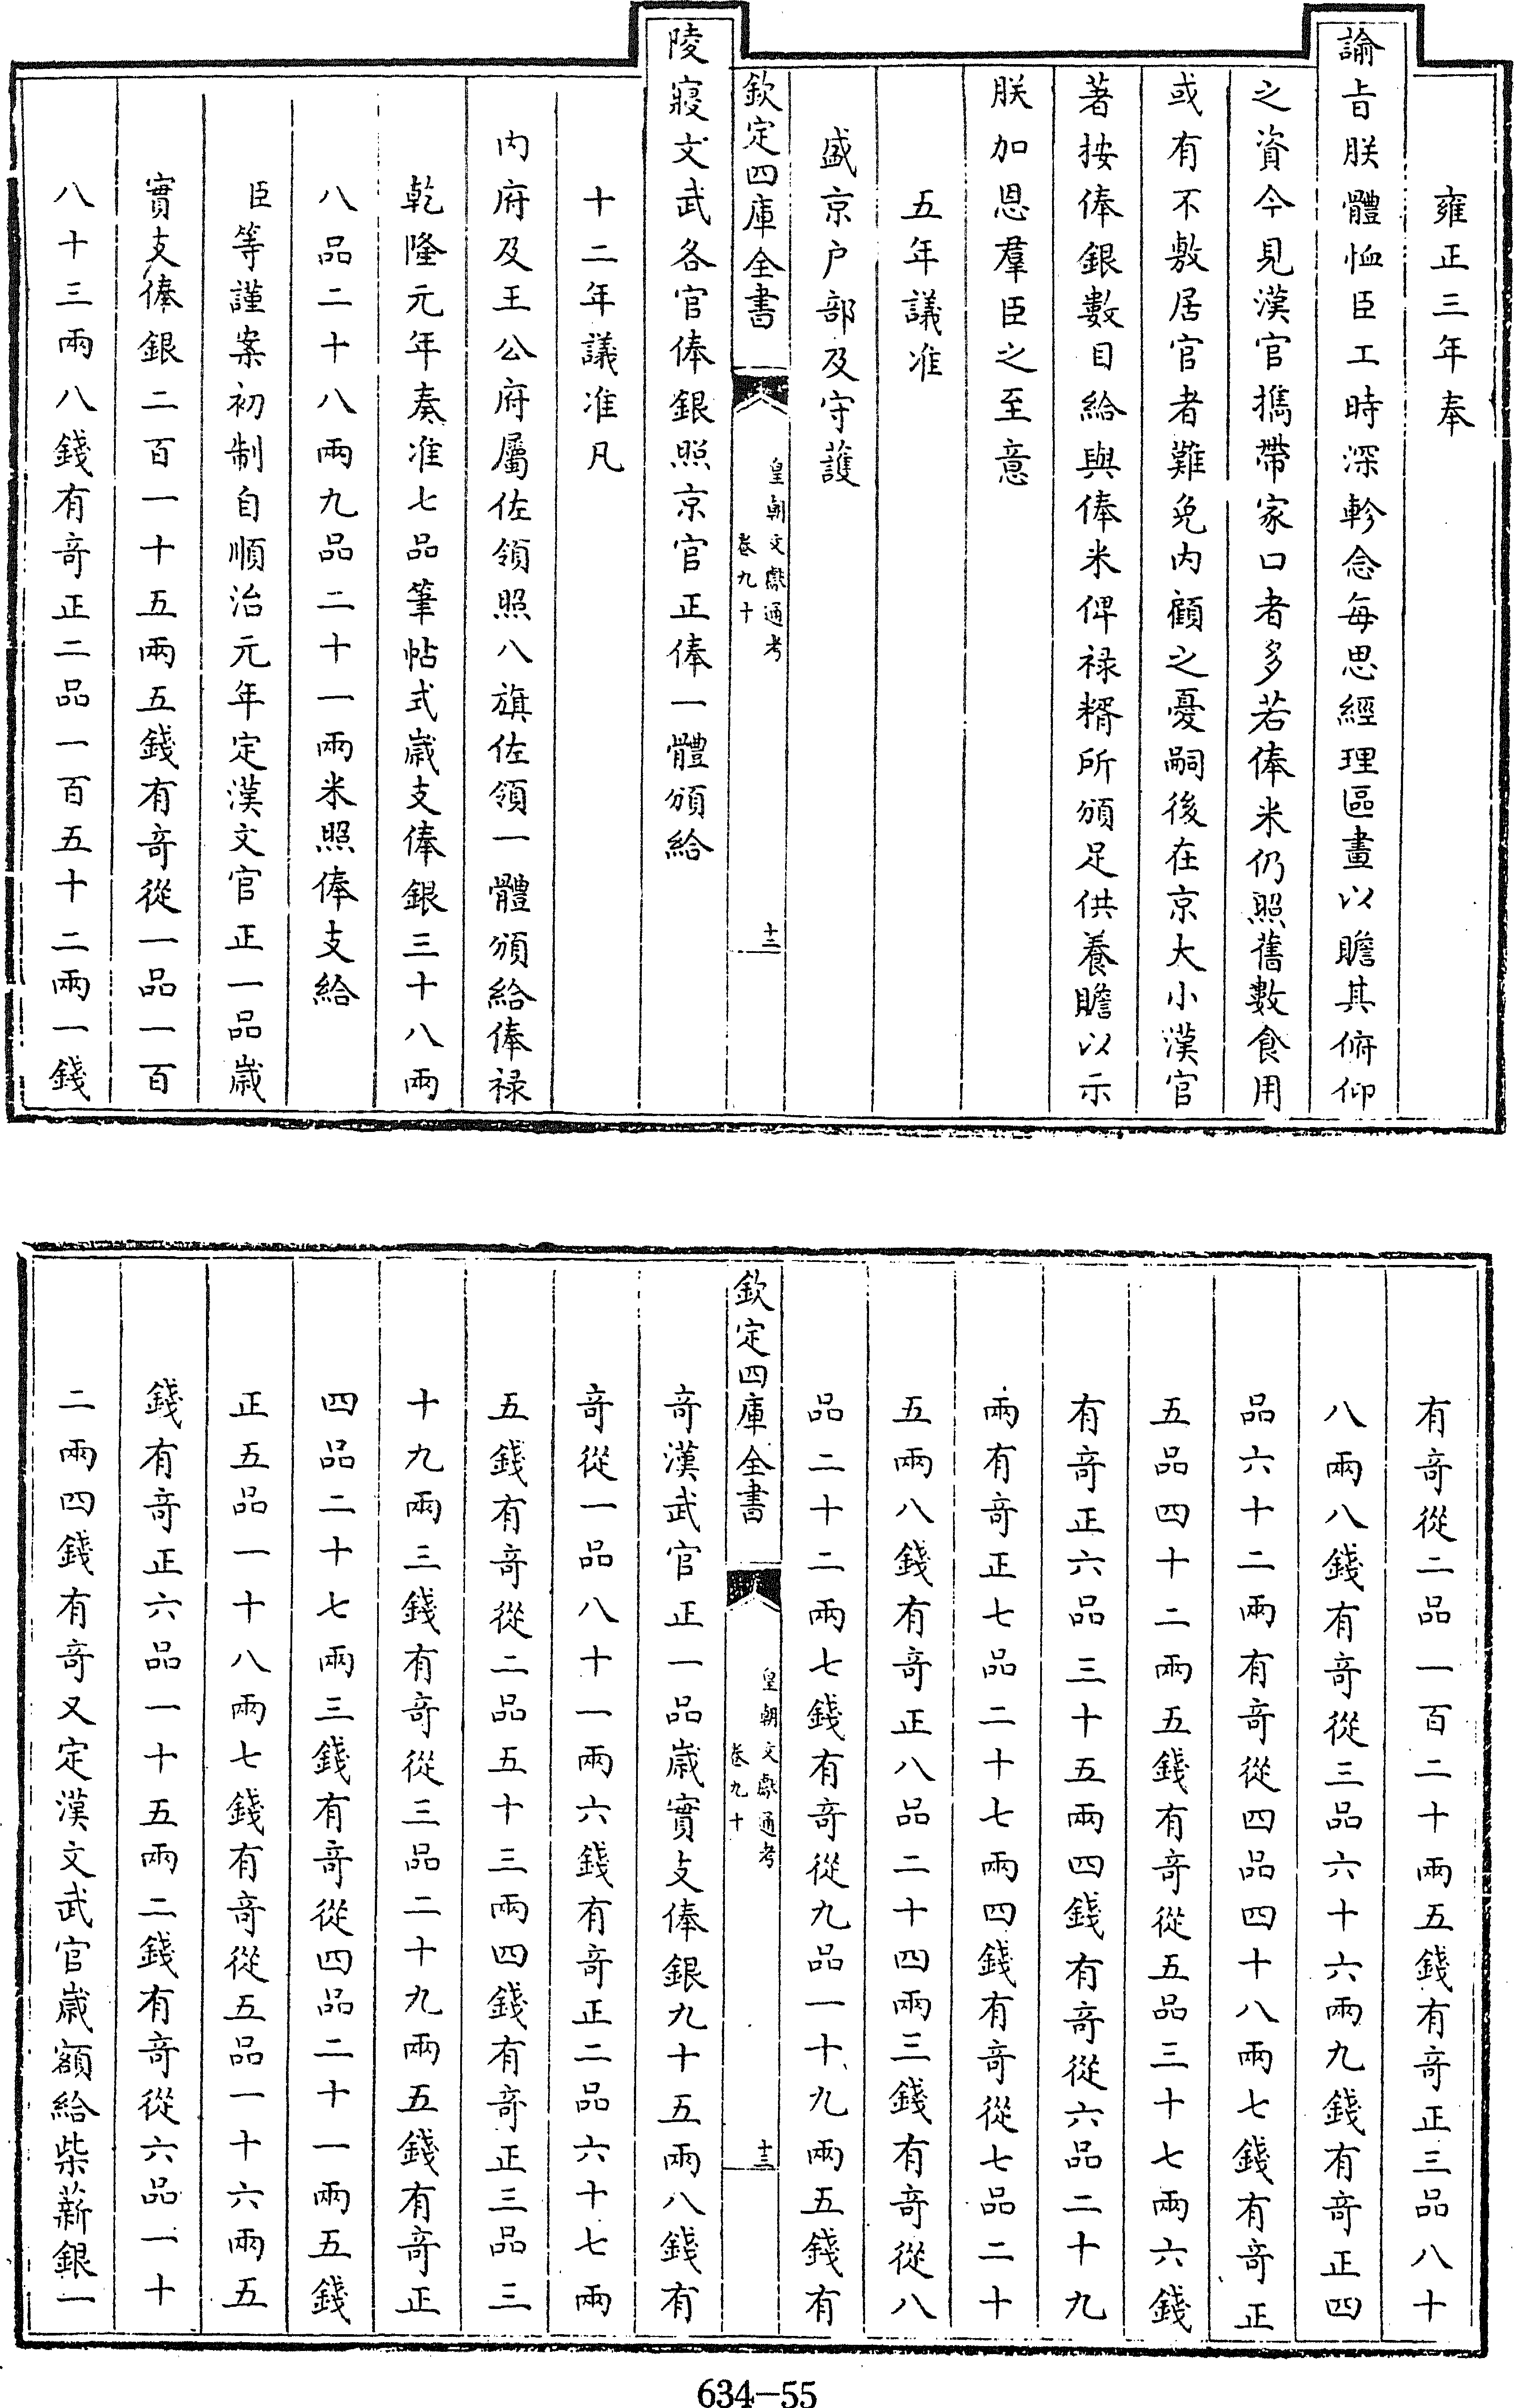 雍正三年奉
諭旨朕體恤臣工時深軫念每思經理區畫以贍其俯仰
之資今見漢官攜帶家口者多若俸米仍照舊數食用
或有不敷居官者難免內顧之憂嗣後在京大小漢官
著按俸銀數目給與俸米俾祿糈所頒足供養贍以示
朕加恩羣臣之至意
五年議准
盛京户部及守護
欽定四庫全書
皇朝文獻通考
卷九十
十三
陵寢文武各官俸銀照京官正俸一體頒給
十二年議准凡
內府及王公府屬佐領照八旗佐領一體頒給俸祿
乾隆元年奏准七品筆帖式歲支俸銀三十八兩
八品二十八兩九品二十一兩米照俸支給
臣等謹案初制自順治元年定漢文官正一品歲
實支俸銀二百一十五兩五錢有奇從一品一百
八十三兩八錢有奇正二品一百五十二兩一錢
有奇從二品一百二十兩五錢有奇正三品八十
八兩八錢有奇從三品六十六兩九錢有奇正四
品六十二兩有奇從四品四十八兩七錢有奇正
五品四十二兩五錢有奇從五品三十七兩六錢
有奇正六品三十五兩四錢有奇從六品二十九
兩有奇正七品二十七兩四錢有奇從七品二十
五兩八錢有奇正八品二十四兩三錢有奇從八
品二十二兩七錢有奇從九品一十九兩五錢有
欽定四庫全書
皇朝文獻通考
卷九十
十三
奇漢武官正一品歲實支俸銀九十五兩八錢有
奇從一品八十一兩六錢有奇正二品六十七兩
五錢有奇從二品五十三兩四錢有奇正三品三
十九兩三錢有奇從三品二十九兩五錢有奇正
四品二十七兩三錢有奇從四品二十一兩五錢
正五品一十八兩七錢有奇從五品一十六兩五
錢有奇正六品一十五兩二錢有奇從六品一十
二兩四錢有奇又定漢文武官歲額給柴薪銀一
634-55